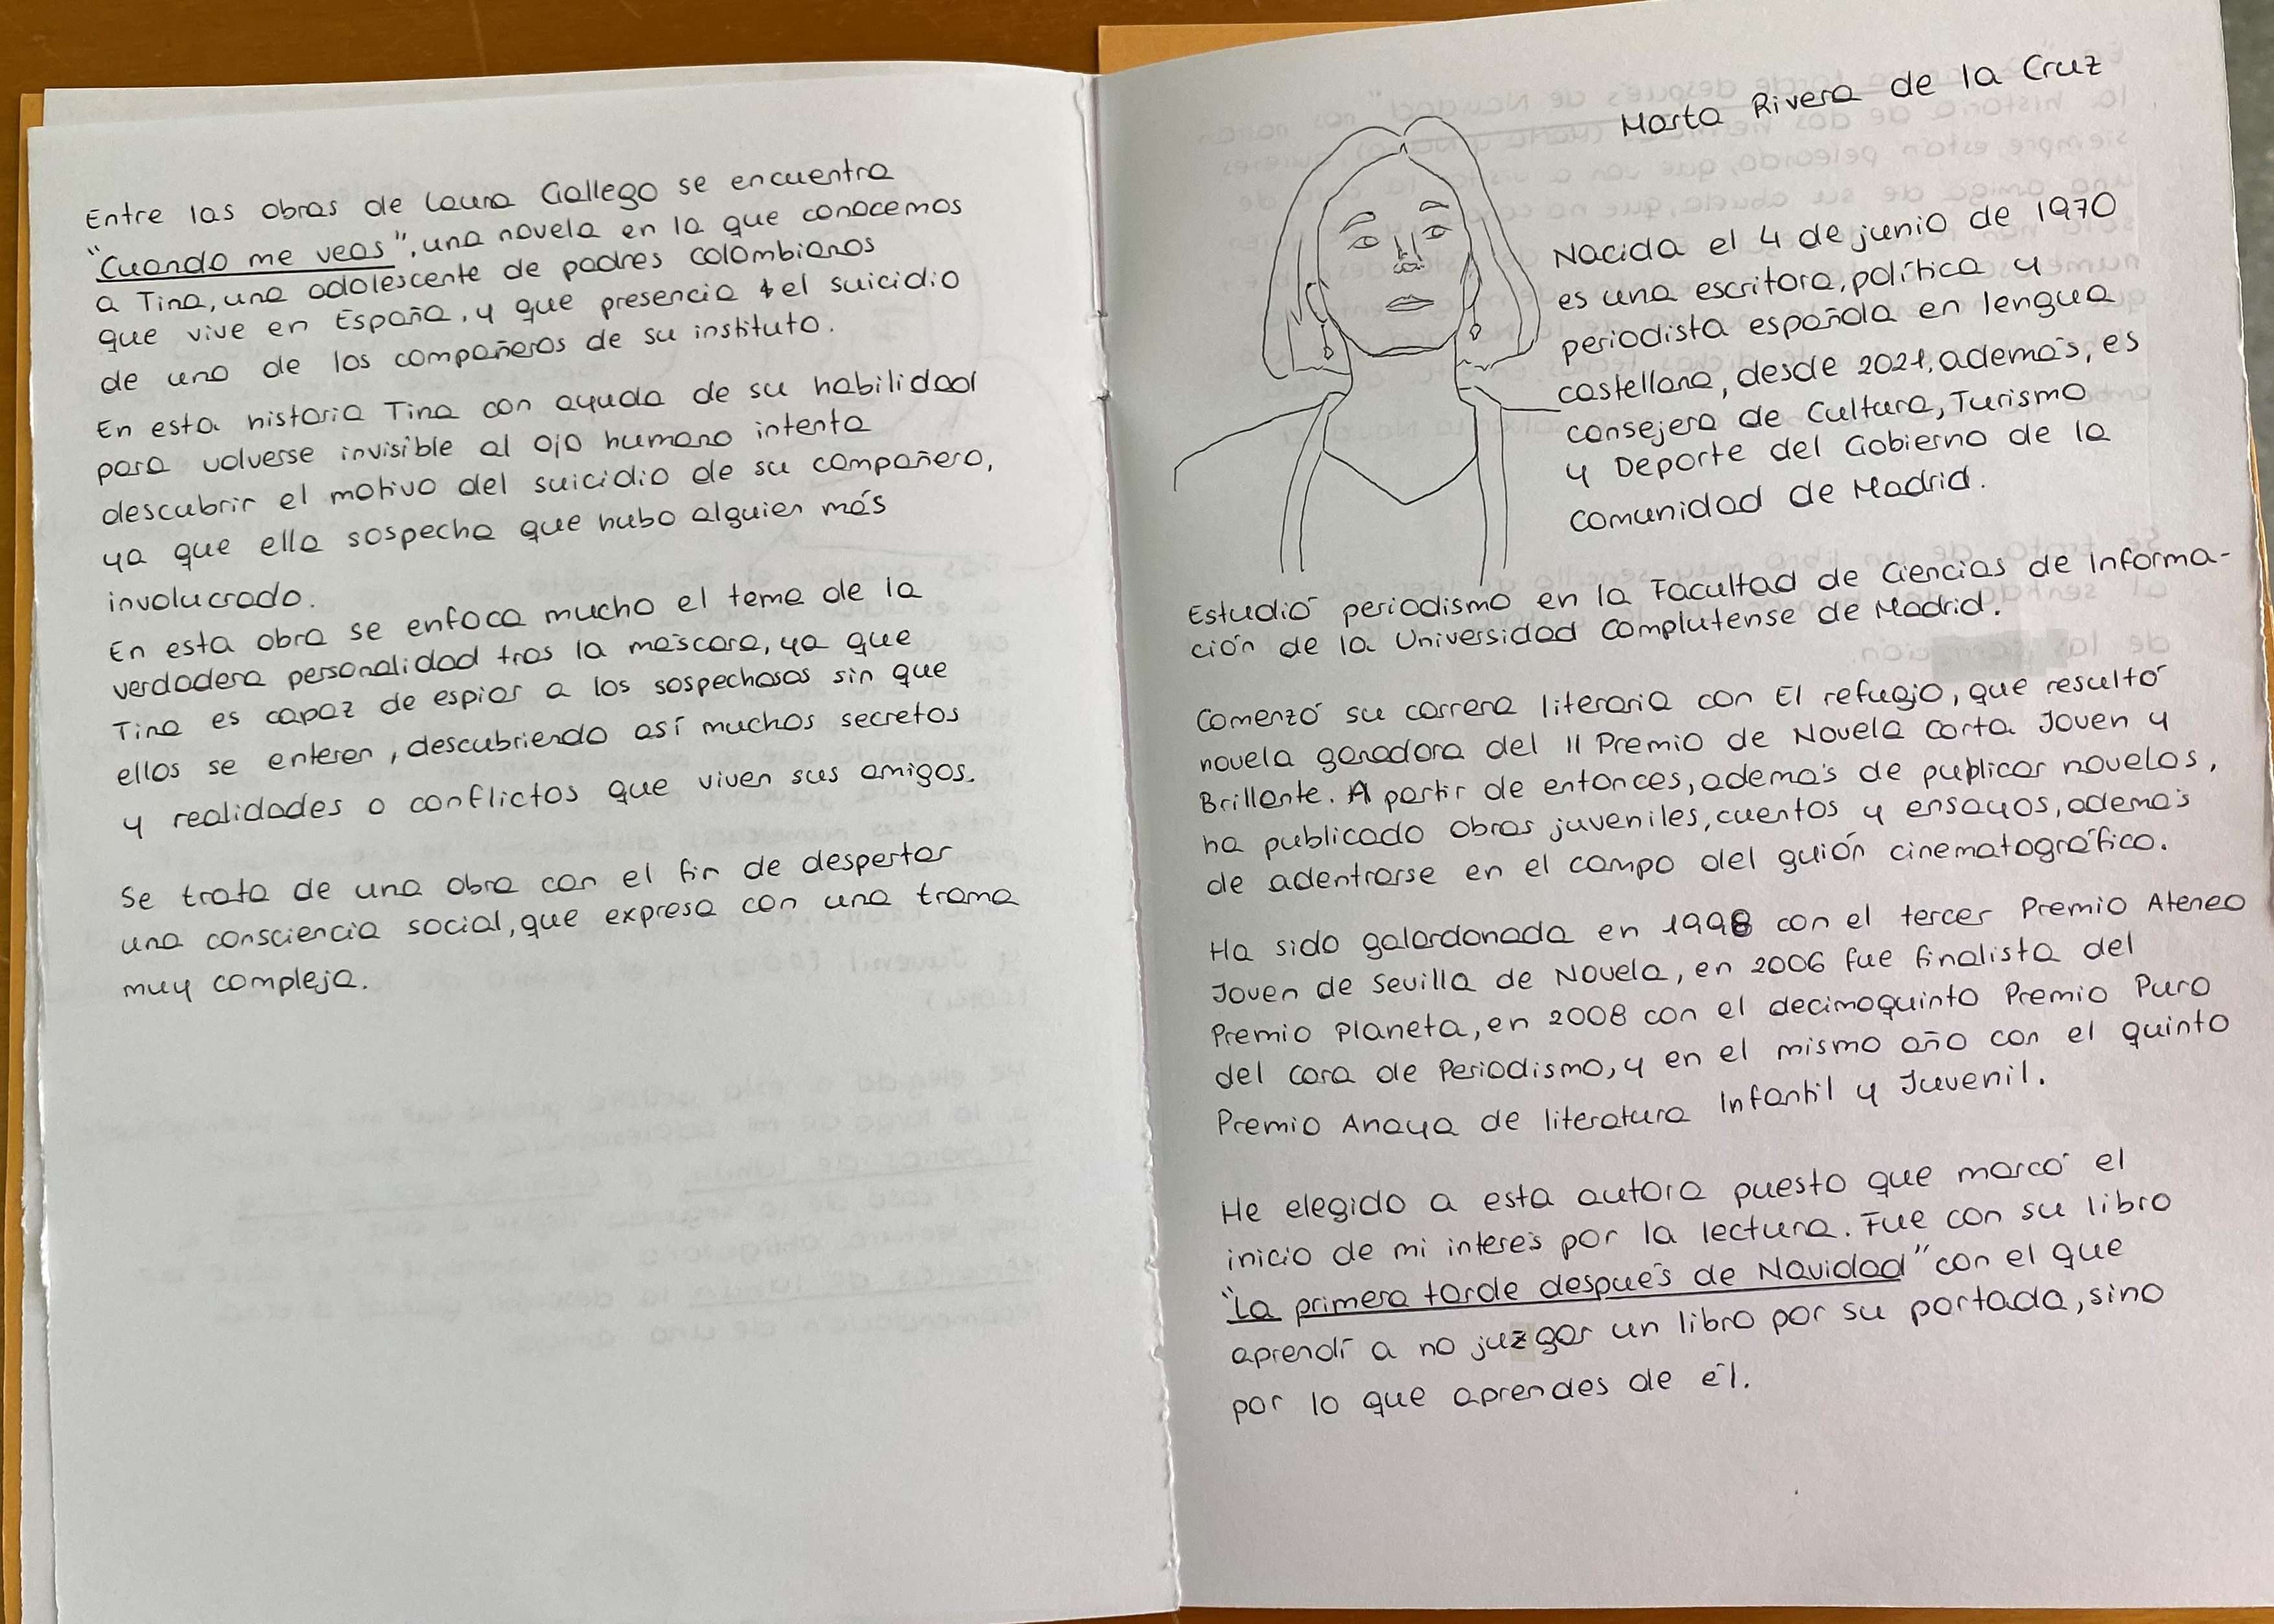 Entre las obras de Laura Gallego se encuentra
"Cuando me veas", una novela en la que conocemos
a Tina, una adolescente de padres colombianos
que vive en España, y que presencia el suicidio
de uno de los compañeros de su instituto.
En esta historia Tina con ayuda de su habilidad
para volverse invisible al ojo humano intenta
descubrir el motivo del suicidio de su compañero,
ya que ella sospecha que hubo alguien más
involucrado.
En esta obra se enfoca mucho el tema de la
verdadera personalidad tras la máscara, ya que
Tina es capaz de espiar a los sospechosos sin que
ellos se enteren, descubriendo así muchos secretos
y realidades o conflictos que viven sus amigos.
Se trata de una obra con el fin de despertar
una consciencia social, que expresa con una trama
muy compleja.
Marta Rivera de la Cruz
Nacida el 4 de junio de 1970
es una escritora, política y
periodista española en lengua
castellana, desde 2021, además, es
consejera de Cultura, Turismo
y Deporte del Gobierno de la
comunidad de Madrid.
Estudió periodismo en la Facultad de Ciencias de Informa-
ción de la Universidad Complutense de Madrid.
Comenzó su carrera literaria con El refugio, que resultó
novela ganadora del II Premio de Novela Corta Joven y
Brillante. A partir de entonces, además de publicar novelas,
ha publicado obras juveniles, cuentos y ensayos, además
de adentrarse en el campo del guión cinematográfico.
Ha sido galardonada en 1998 con el tercer Premio Ateneo
Joven de Sevilla de Novela, en 2006 fue finalista del
Premio Planeta, en 2008 con el decimoquinto Premio Puro
del Cora de Periodismo, y en el mismo año con el quinto
Premio Anaya de literatura Infantil y Juvenil.
He elegido a esta autora puesto que marcó el
inicio de mi interés por la lectura. Fue con su libro
"La primera tarde después de Navidad" con el que
aprendí a no juzgar un libro por su portada, sino
por lo que aprendes de él.